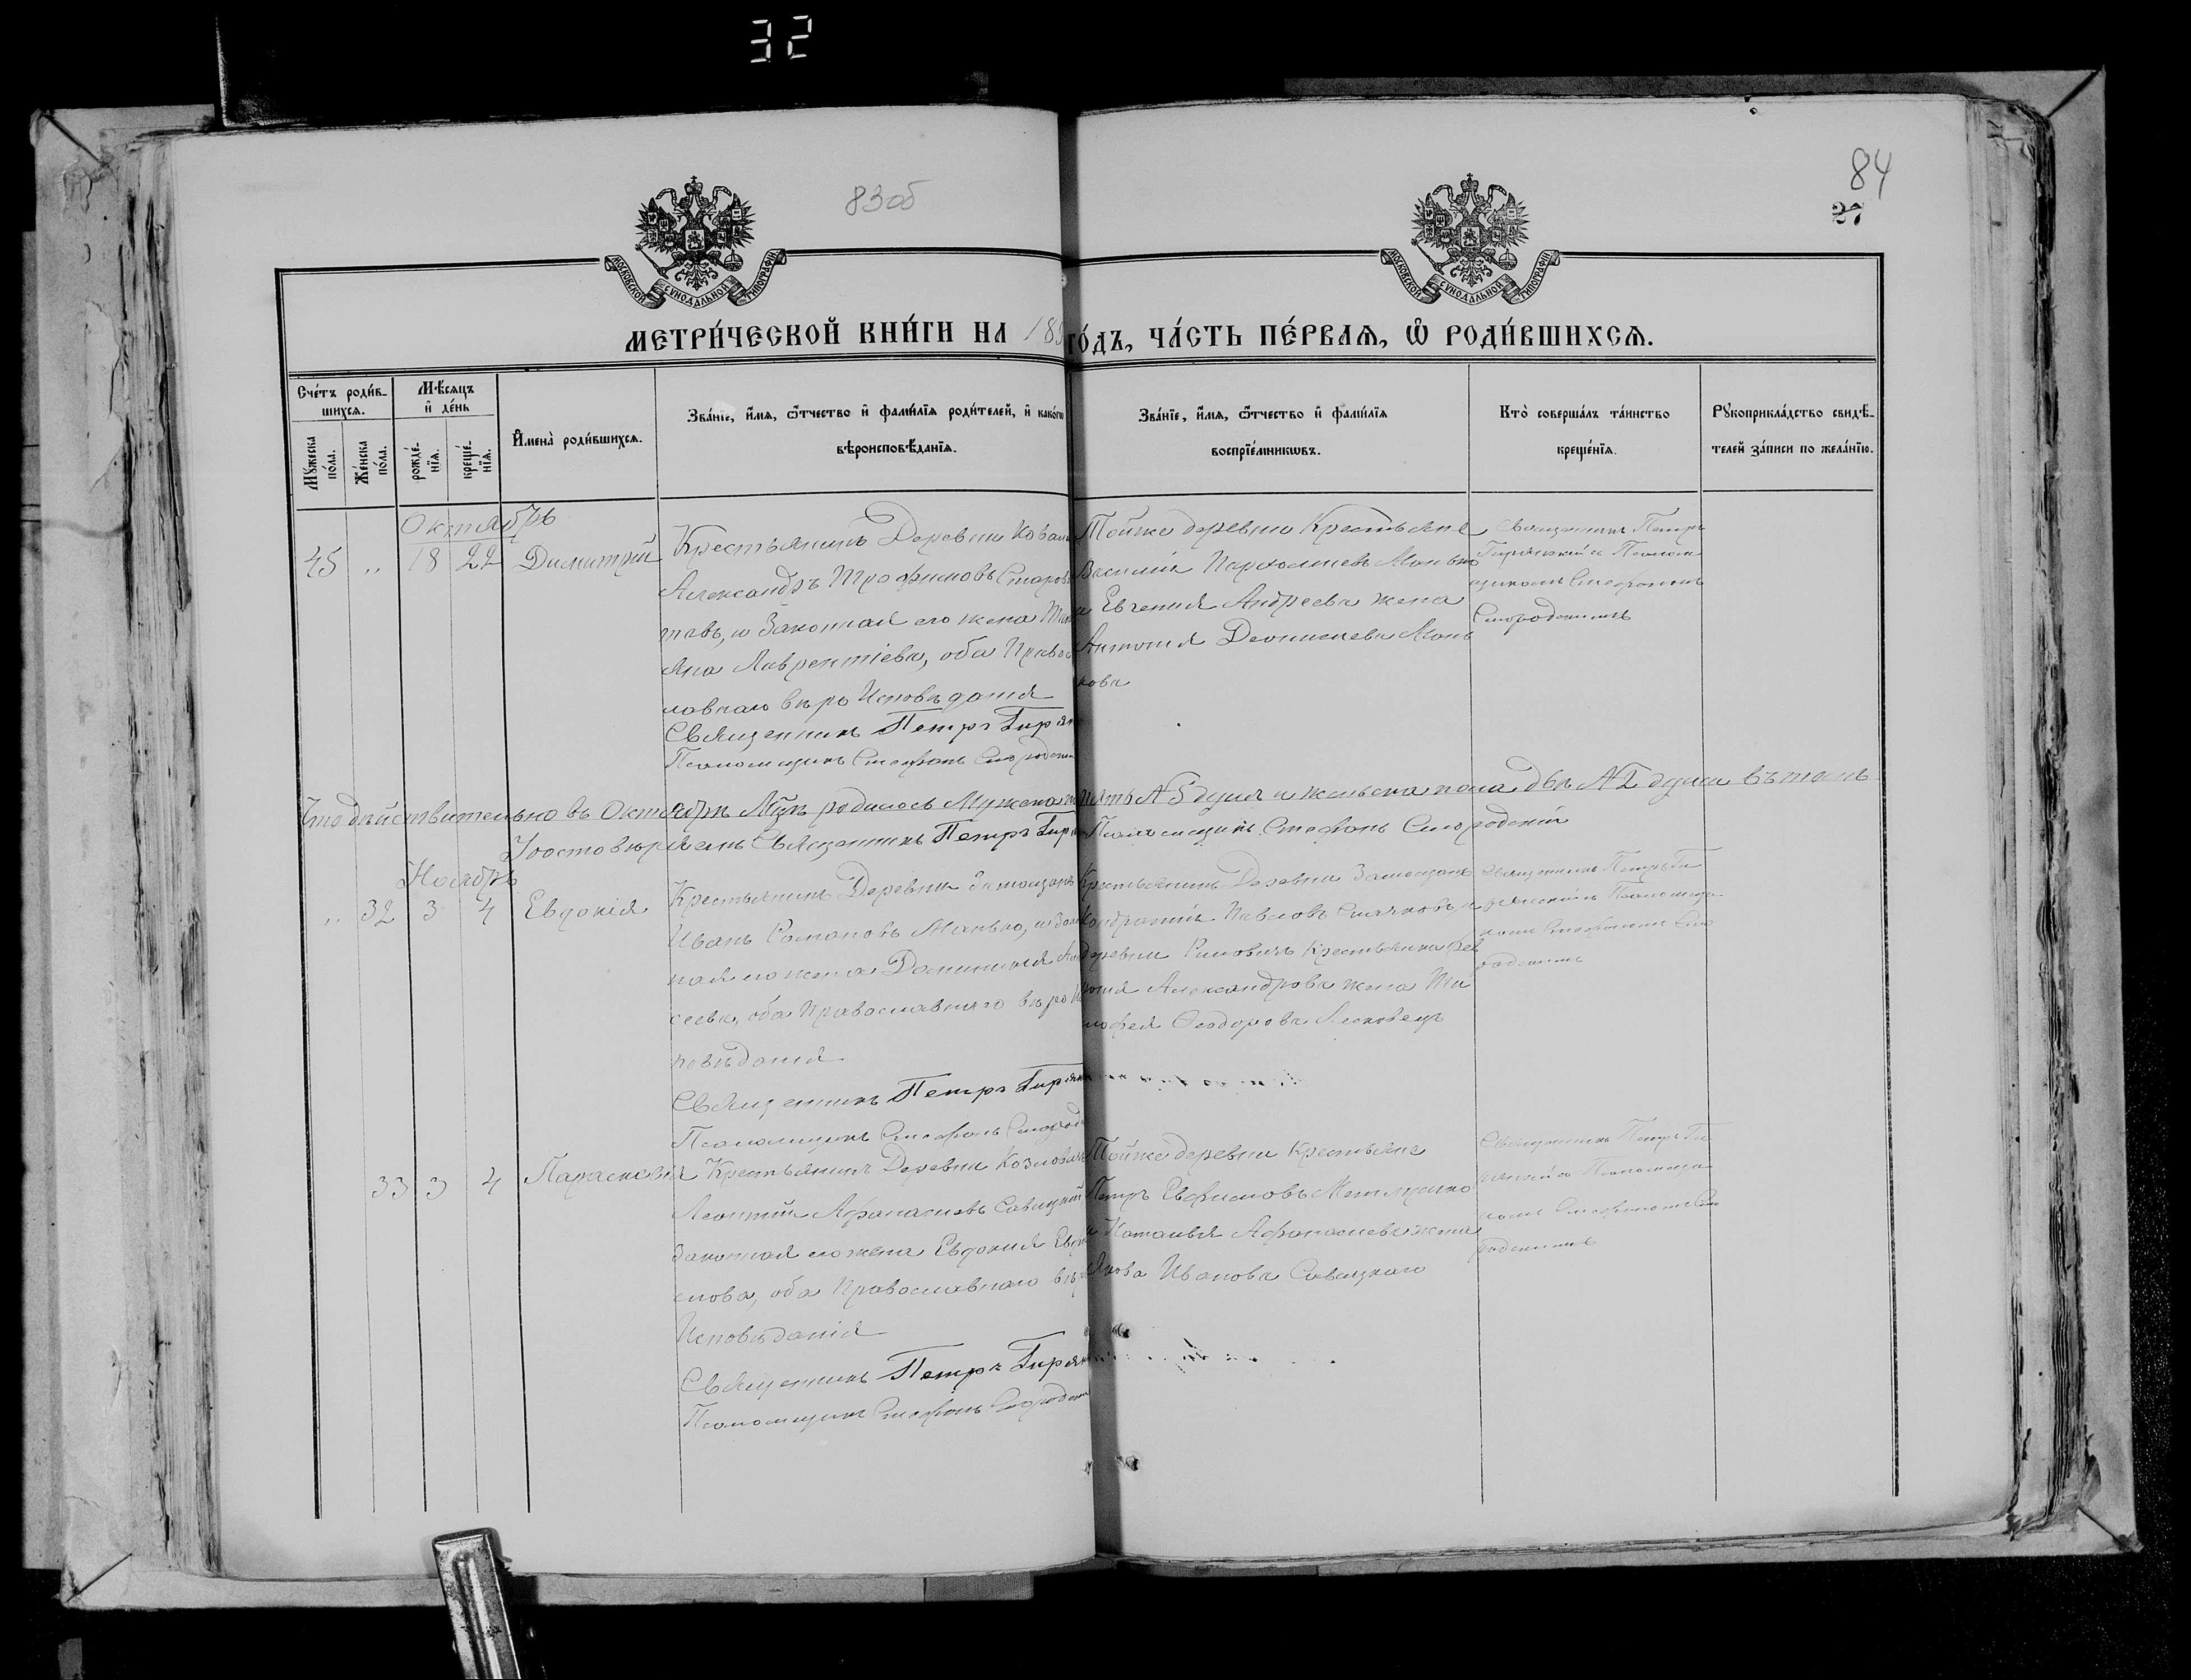 32
83об
84
27
МОСКОВСКОЙ СѴНОДАЛЬНОЙ ТИПОГРАФІИ
МОСКОВСКОЙ СѴНОДАЛЬНОЙ ТИПОГРАФІИ
МЕТРИ́ЧЕСКОЙ КНИ́ГИ НА 189
ГО́ДЪ, ЧА́СТЬ ПЕ́РВАѦ, Ѽ РОДИ́ВШИХСѦ.
Сче́тъ роди́в-
шихсѧ.
Мꙋжеска по́ла.
Же́нска по́ла.
Мѣ́сѧцъ
и҆ де́нь
рожде́-
нїѧ.
креще́-
нїѧ.
И҆мена̀ роди́вшихсѧ.
Зва́нїе, и҆́мѧ, ѻ҆́тчество и҆ фамѵ́лїѧ роди́телей, и҆ како́гѡ
вѣроисповѣ́данїѧ.
Зва́нїе, и҆́мѧ, ѻ҆́тчество и҆ фамѵ́лїѧ
воспрїе́мникѡвъ.
Кто̀ соверша́лъ та́инство
креще́нїѧ.
Рꙋкоприкла́дство свидѣ́-
телей за́писи по жела́нїю.
Октябрь
45 „ 18 22 Димитрій
Крестьянинъ Деревни Кова
Александръ Трофимовъ Старов
товъ, и Законная его жена Тат
яна Лаврентіева, оба Правос
лавнаго вѣро Исповѣданія
Священникъ Петръ Гирян
Псаломщикъ Стефанъ Смородски
Тойже деревни Крестьяне
Василій Пархомиевъ Манько
и Евгения Андреева жена
Антонія Деонисиева Мань
кова
Священникъ Петръ
Гирянскій съ Псалом
щикомъ Стефаномъ
Смородскимъ
Что дѣйствительно въ Октябрѣ М-цѣ родилось Мужска по
пять № 5 душъ и женска пола двѣ № 2 души въ томъ
Удостовѣряемъ Священникъ Петръ Гирян
Псаломщикъ Стефанъ Смородскій
Ноябрь
„ 32 3 4 Евдокія
Крестьянинъ Деревни Замощанъ
Иванъ Романовъ Манько, и Зако
ная его жена Домникія Ал
сеева, оба Православнаго вѣро Ис
повѣданія
Священникъ Петръ Гирян
Псаломщикъ Стефанъ Смород
Крестьянинъ Деревни Замощанъ
Кондратій Павловъ и
деревни Крестьянина
Александрова жена Ти
мофея Ѳеодорова Лесковецъ
Священникъ Петръ Ги
рянскій съ Псаломщи
комъ Стефаномъ Смо
родскимъ
33 3 4 Параскевія
Крестьянинъ Деревни Козловичъ
Леонтій Афанасиевъ Савицкій
Законная его жена Евдокия Евф
мова, оба Православнаго вѣр
Исповѣданія
Священникъ Петръ Гирян
Псаломщикъ Стефанъ Смородски
Тойже деревни Крестьяне
Петръ Евфимовъ
и Наталья Афанасиева жена
Якова Иванова Савицкаго
Священникъ Петръ Ги
рянскій съ Псаломщи
комъ Стефаномъ Смо
родскимъ